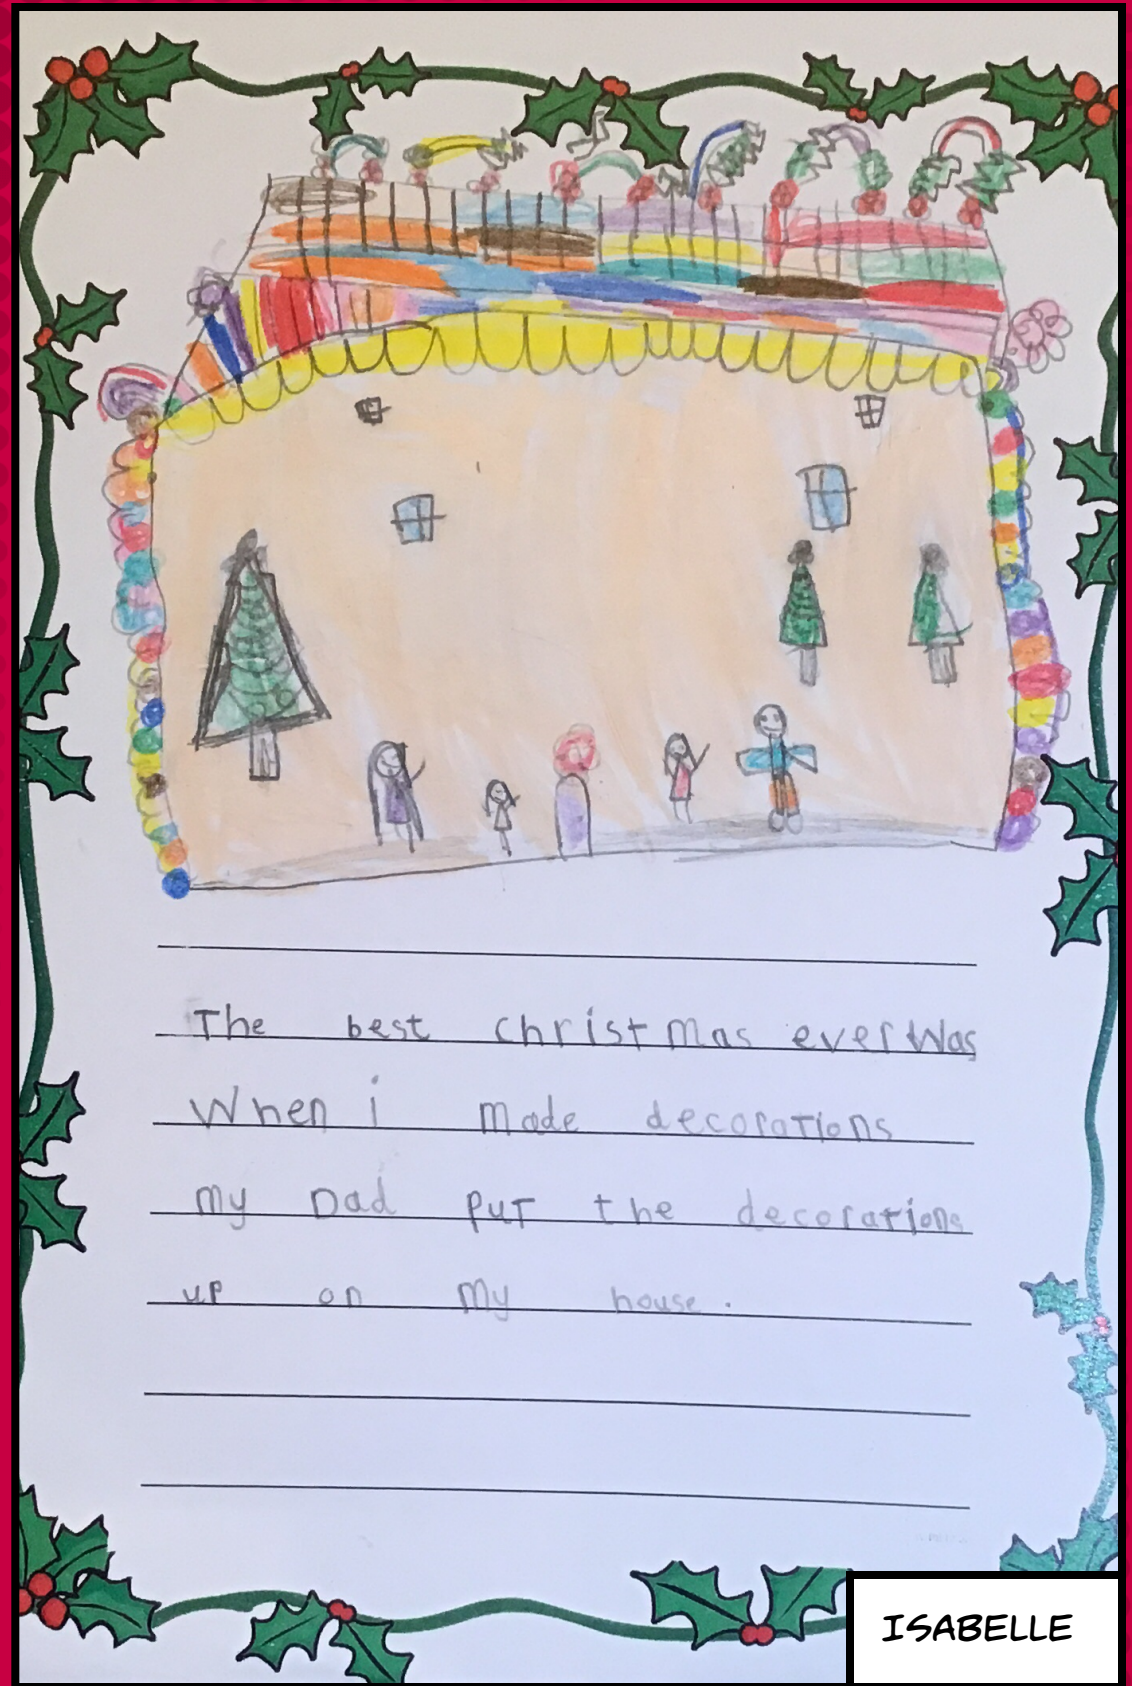 The best christmas ever was
When i made decorations
my Dad put the decorations
up on my house.
ISABELLE